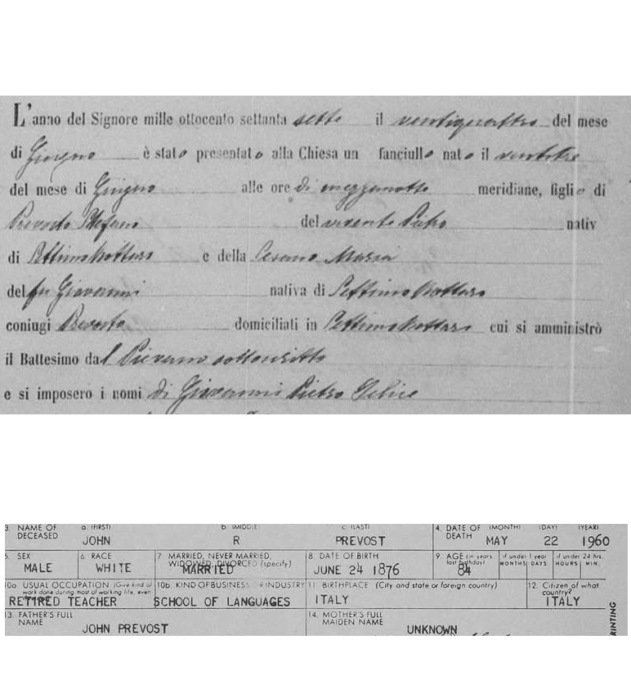 L'anno del Signore mille ottocento settanta sette il ventiquattro del mese
di Giugno è stato presentato alla Chiesa un fanciullo nato il ventitre
del mese di Giugno alle ore di mezzanotte meridiane, figlio di
Prevosto Stefano del vivente Pietro nativ
di Settimo Rottaro e della Maria
del fu Giovanni nativa di Settimo Rottaro
coniugi Prevosto domiciliati in Settimo Rottaro cui si amministrò
il Battesimo dal Pievano sottoscritto
e si imposero i nomi di Giovanni Pietro Felice
3. NAME OF DECEASED a. (FIRST) b. (MIDDLE) c. (LAST) 4. DATE OF DEATH (MONTH) (DAY) (YEAR)
JOHN R PREVOST MAY 22 1960
5. SEX 6. RACE 7. MARRIED, NEVER MARRIED, WIDOWED, DIVORCED (specify) 8. DATE OF BIRTH 9. AGE (in years last birthday) if under 1 year MONTHS DAYS if under 24 hrs. HOURS MIN.
MALE WHITE MARRIED JUNE 24 1876 84
10a. USUAL OCCUPATION (Give kind of work done during most of working life, even 10b. KIND OF BUSINESS OR INDUSTRY 11. BIRTHPLACE (City and state or foreign country) 12. Citizen of what country?
RETIRED TEACHER SCHOOL OF LANGUAGES ITALY ITALY
13. FATHER'S FULL NAME 14. MOTHER'S FULL MAIDEN NAME
JOHN PREVOST UNKNOWN
RINTING